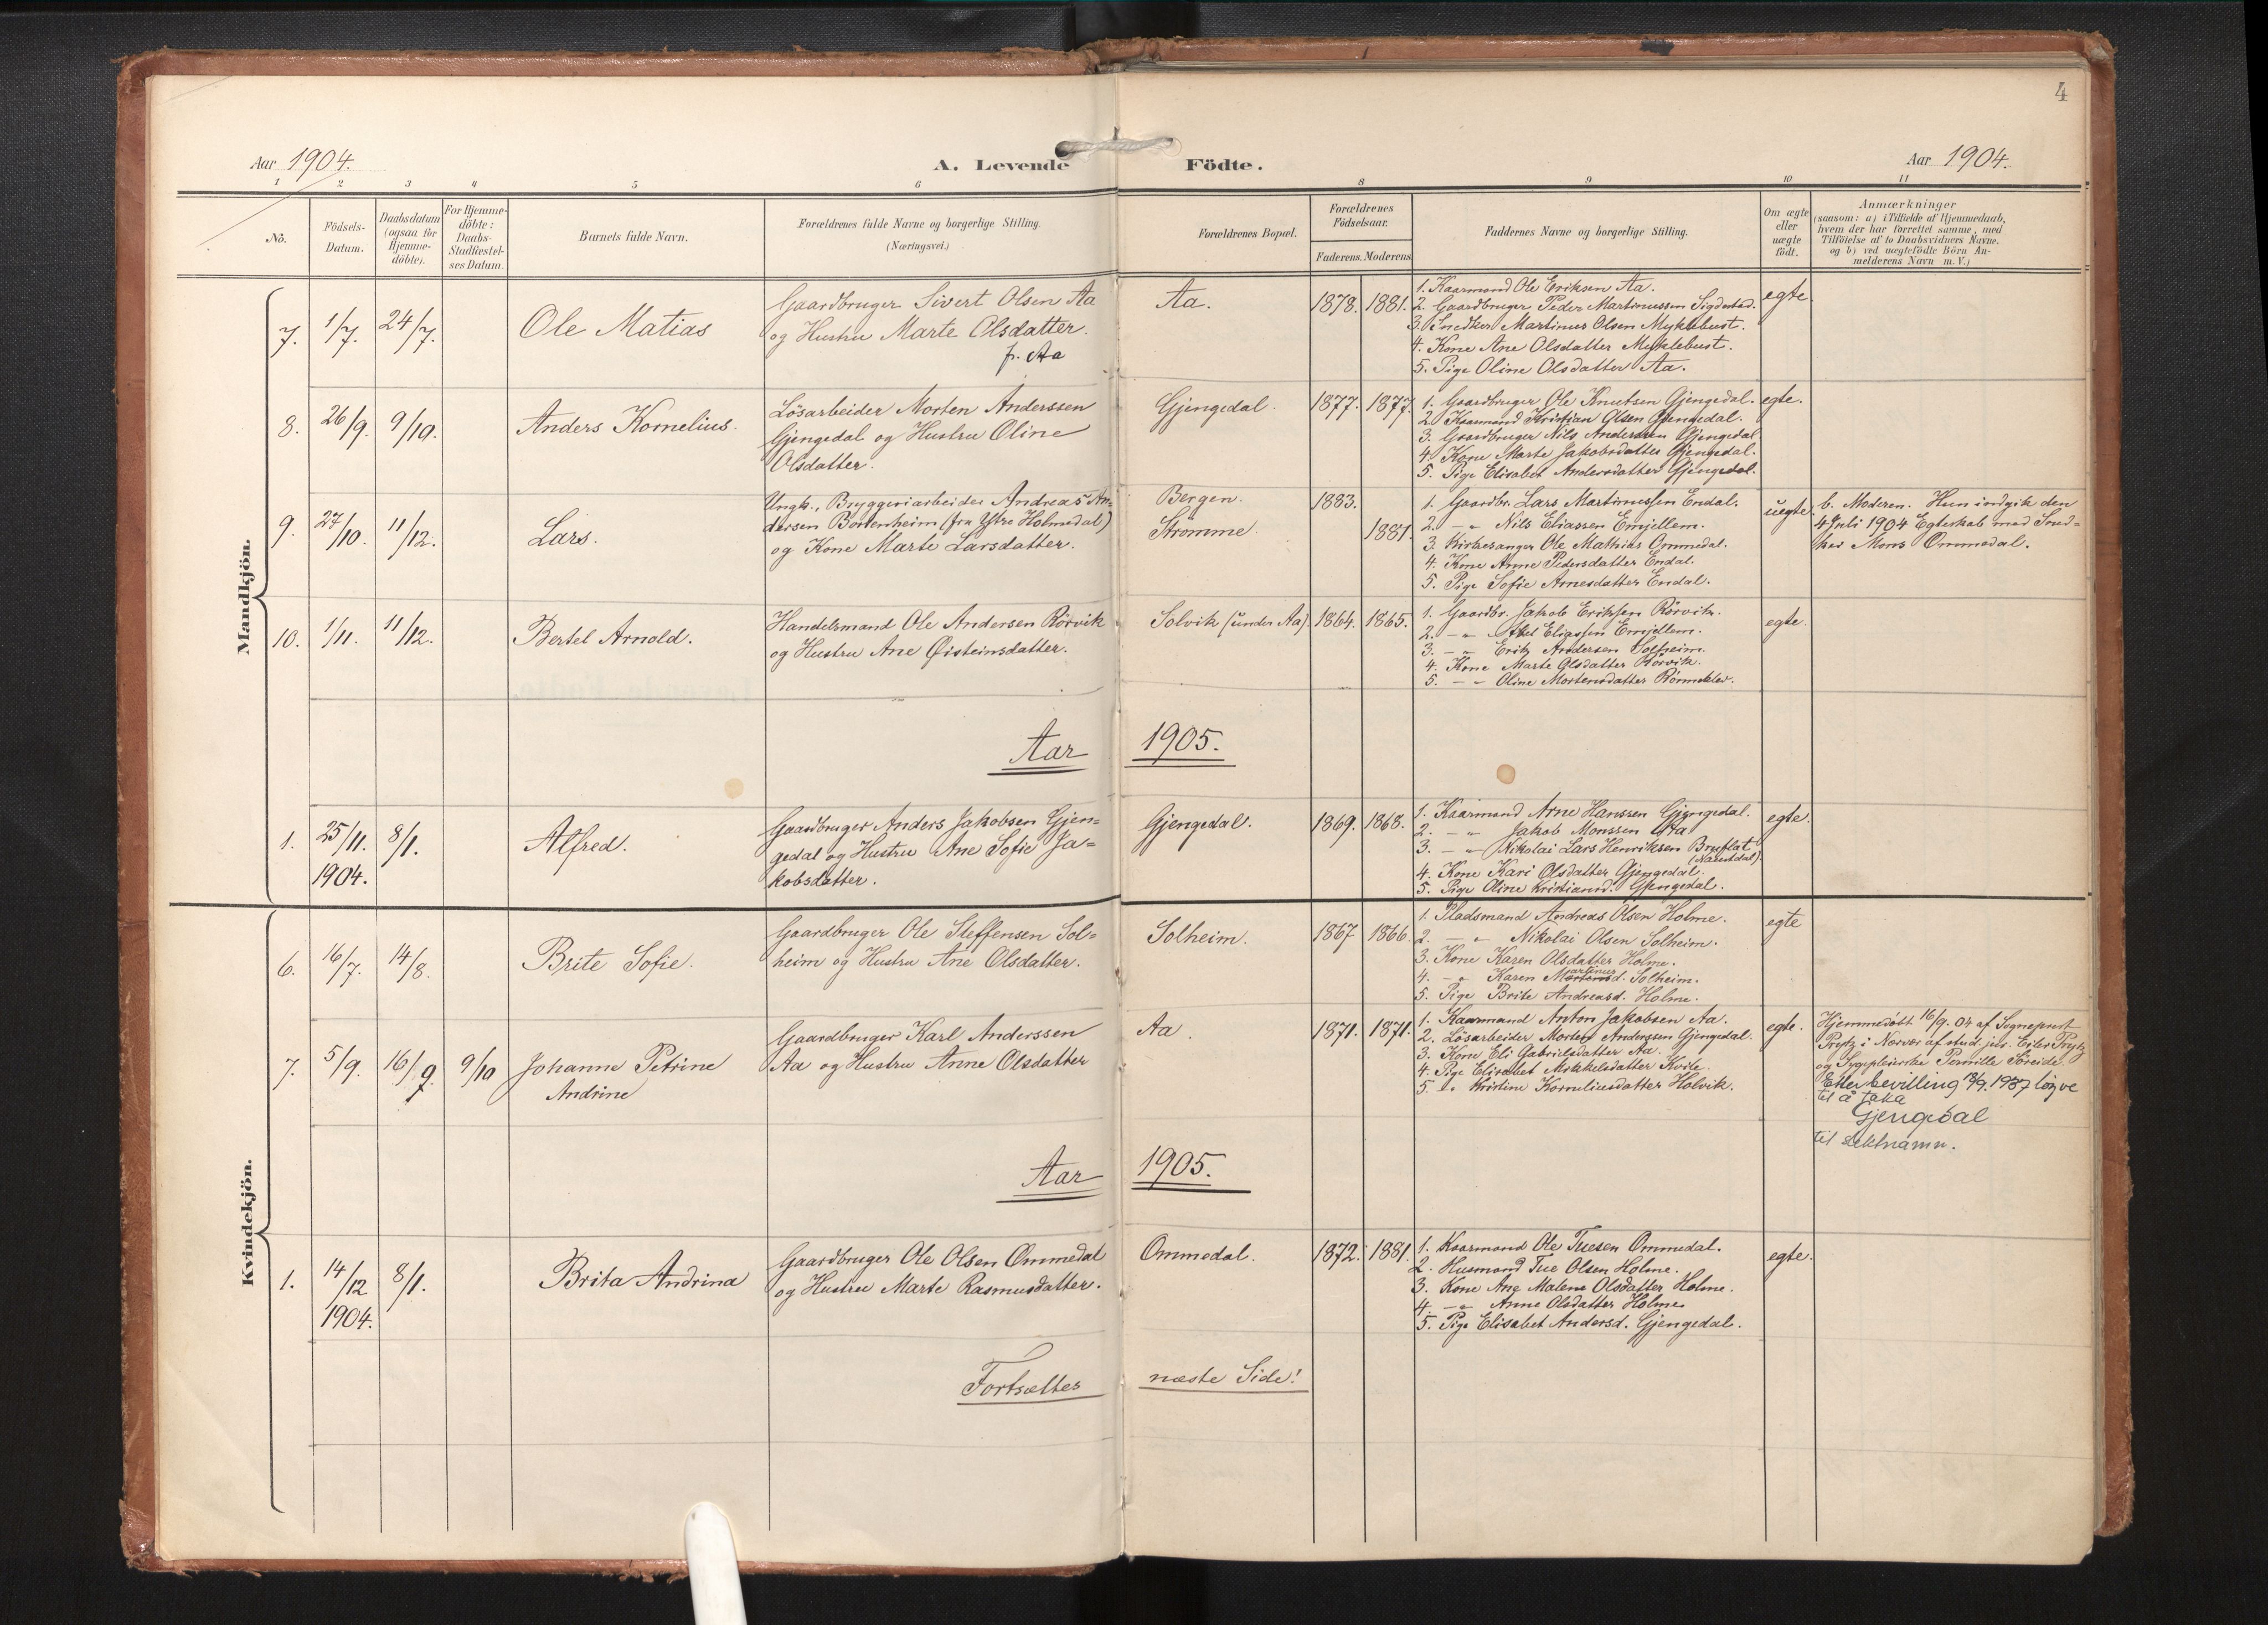 4
Aar 1904.
A. Levende Födte.
Aar 1904.
1 2 3 4 5 6 8 9 10 11
No.
Födsels-
Datum.
Daabsdatum
(ogsaa for
Hjemme-
döbte).
For Hjemme-
döbte:
Daabs-
Stadfæstel-
ses Datum.
Barnets fulde Navn.
Forældrenes fulde Navne og borgerlige Stilling.
(Næringsvei.)
Forældrenes Bopæl.
Forældrenes
Födselsaar.
Faderens. Moderens
Faddernes Navne og borgerlige Stilling.
Om ægte
eller
uægte
födt.
Anmærkninger
(saasom: a) i Tilfælde af Hjemmedaab,
hvem der har forrettet samme, med
Tilföielse af to Daabsvidners Navne.
og b) ved uægtefödte Börn An-
melderens Navn m. V.)
Mandkjön.
7. 1/7. 24/7.
Ole Matias
Gaardbruger Sivert Olsen Aa
og Hustru Marte Olsdatter.
f. Aa
Aa.
1878. 1881.
1. Kaarmand Ole Eriksen Aa.
2. Gaardbruger Peder Martinussen Sigdestad.
3. Snedker Martinus Olsen Myklebust.
4. Kone Ane Olsdatter Myklebust.
5. Pige Oline Olsdatter Aa.
egte.
8. 26/9. 9/10.
Anders Kornelius.
Lösarbeider Morten Anderssen
Gjengedal og Hustru Oline
Olsdatter.
Gjengedal.
1877. 1877.
1. Gaardbruger Ole Knutsen Gjengedal.
2. Kaarmand Kristian Olsen Gjengedal.
3. Gaardbruger Nils Anderssen Gjengedal.
4. Kone Marte Jakobsdatter Gjengedal.
5. Pige Elisabet Andersdatter Gjengedal.
egte.
9. 27/10. 11/12.
Lars.
Ungk., Bryggeriarbeider Andreas An-
dersen Bortenheim (fra Ytre Holmedal)
og Kone Marte Larsdatter.
Bergen.
Strömme.
1883.
1881.
1. Gaardbr. Lars Martinussen Endal.
2. — „ Nils Eliassen Emjellem.
3. Kirkesanger Ole Mathias Ommedal.
4. Kone Anne Pedersdatter Endal.
5. Pige Sofie Arnesdatter Endal.
uegte.
b. Moderen. Hun indgik den
4 Juli 1904 Egteskab med Sned=
ker Mons Ommedal.
10. 1/11. 11/12.
Bertel Arnold.
Handelsmand Ole Andersen Rörvik
og Hustru Ane Øisteinsdatter.
Solvik (under Aa)
1864. 1865.
1. Gaardbr. Jakob Eriksen Rörvik.
2. — „ Abel Eliassen Emjellem.
3. — „ Erik Andersen Solheim.
4. Kone Marte Olsdatter Rörvik.
5. — „ Oline Mortensdatter Rönneklev.
egte.
Aar 1905.
1. 25/11. 1904. 8/1.
Alfred.
Gaardbruger Anders Jakobsen Gjen=
gedal og Hustru Ane Sofie Ja=
kobsdatter.
Gjengedal.
1869. 1868.
1. Kaarmand Arne Hanssen Gjengedal.
2. — „ Jakob Monssen Aa
3. — „ Nikolai Lars Henriksen Bruflat
(Naustdal).
4. Kone Kari Olsdatter Gjengedal.
5. Pige Oline Kristiansd. Gjengedal.
egte.
Kvindekjön.
6. 16/7. 14/8.
Brite Sofie.
Gaardbruger Ole Steffensen Sol=
heim og Hustru Ane Olsdatter.
Solheim.
1867 1866.
1. Pladsmand Andreas Olsen Holme.
2. — „ Nikolai Olsen Solheim.
3. Kone Karen Olsdatter Holme.
4. — „ Karen Martinusd. Solheim.
5. Pige Brite Andreasd. Holme.
egte
7. 5/9. 16/9 9/10
Johanne Petrine
Andrine
Gaardbruger Karl Anderssen
Aa og Hustru Anne Olsdatter
Aa.
1871. 1871.
1. Kaarmand Anton Jakobsen Aa.
2. Lösarbeider Morten Anderssen Gjengedal.
3. Kone Eli Gabrielsdatter Aa.
4. Pige Elisabet Mikkelsdatter Kvile.
5. „ Kristine Korneliusdatter Holvik.
egte.
Hjemmedöbt 16/9. 04 af Sogneprest
Prytz i Nærvær af stud. jur. Eiler Prytz
og Sygepleierske Pernille Söreide.
Etter bevilling 13/9. 1937 löyve
til å taka
Gjengedal
til slektnamn.
Aar 1905.
1. 14/12 1904. 8/1.
Brita Andrina
Gaardbruger Ole Olsen Ommedal
og Hustru Marte Rasmusdatter.
Ommedal.
1872. 1881.
1. Kaarmand Ole Tuesen Ommedal.
2. Husmand Tue Olsen Holme.
3. Kone Ane Malene Olsdatter Holme.
4. — „ Anne Olsdatter Holme.
5. Pige Elisabet Andersd. Gjengedal.
egte.
Fortsættes næste Side!